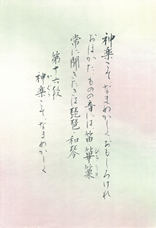 神楽こそなまめかしくおもしろけれ
おほかたものの音には笛篳篥
常に聞きたきは琵琶和琴
第十六段
神楽こそなまめかしく